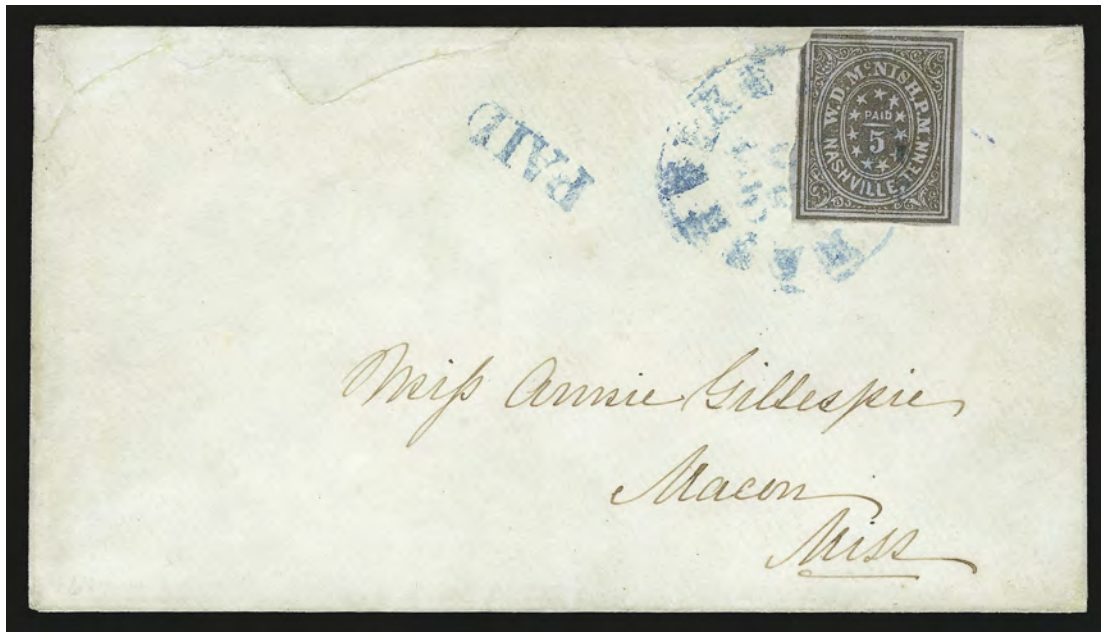 PAID
W.D. McNISH, P.M.
PAID
5
NASHVILLE, TENN.
Miss Annie Gillespie
Macon
Miss